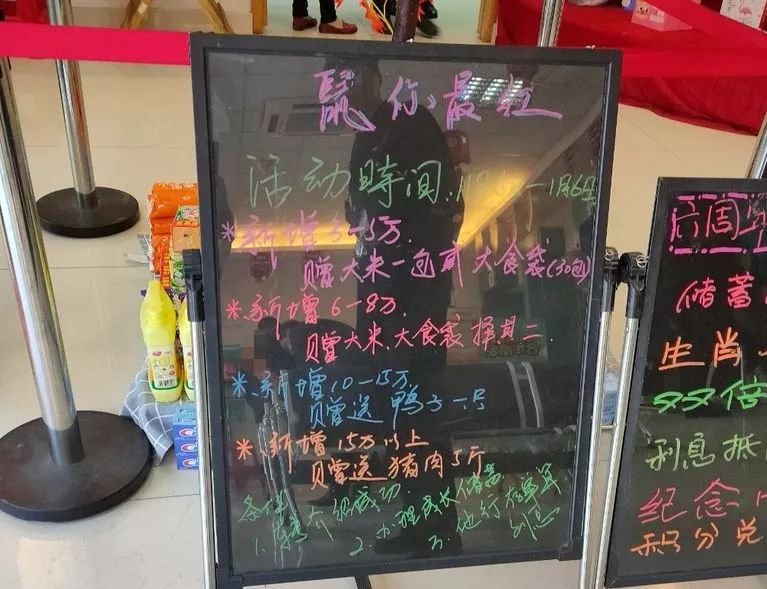 鼠你最红
活动時间:1月3日—1月6日
*新增3—5万
贈大米一包或大食袋(30包)
*新增6—8万
贝曾大米、大食袋择其二.
*新增10—15万
贝曾送鸭子一只
*新增15万以上
贝曾送猪肉5斤
条件
1.转介绍成功. 2.办理成长储蓄 3.他行储蓄
储蓄
生肖
双倍
利息抵
纪念
积分兑